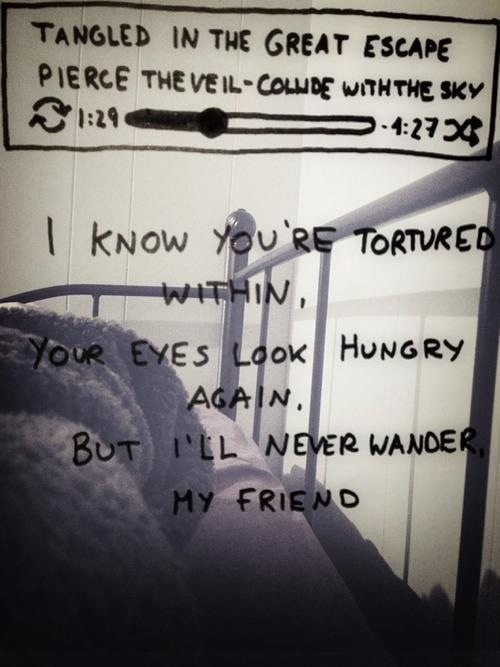 TANGLED IN THE GREAT ESCAPE
PIERCE THE VEIL-COLLIDE WITH THE SKY
1:29 -4:27
I KNOW YOU'RE TORTURED
WITHIN,
YOUR EYES LOOK HUNGRY
AGAIN,
BUT I'LL NEVER WANDER,
MY FRIEND